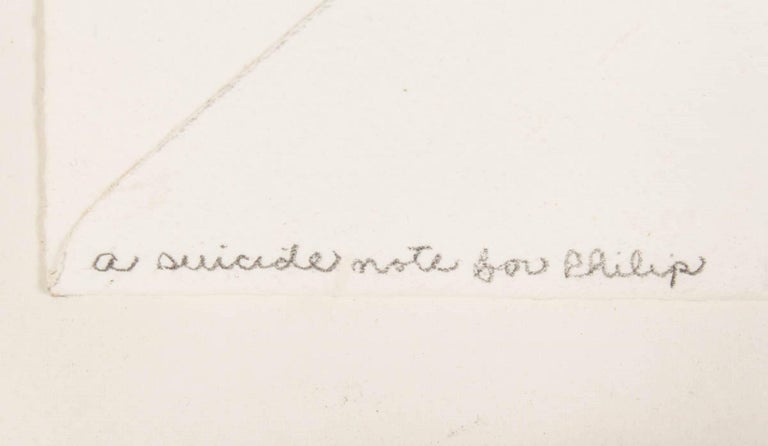 a suicide note for Philip